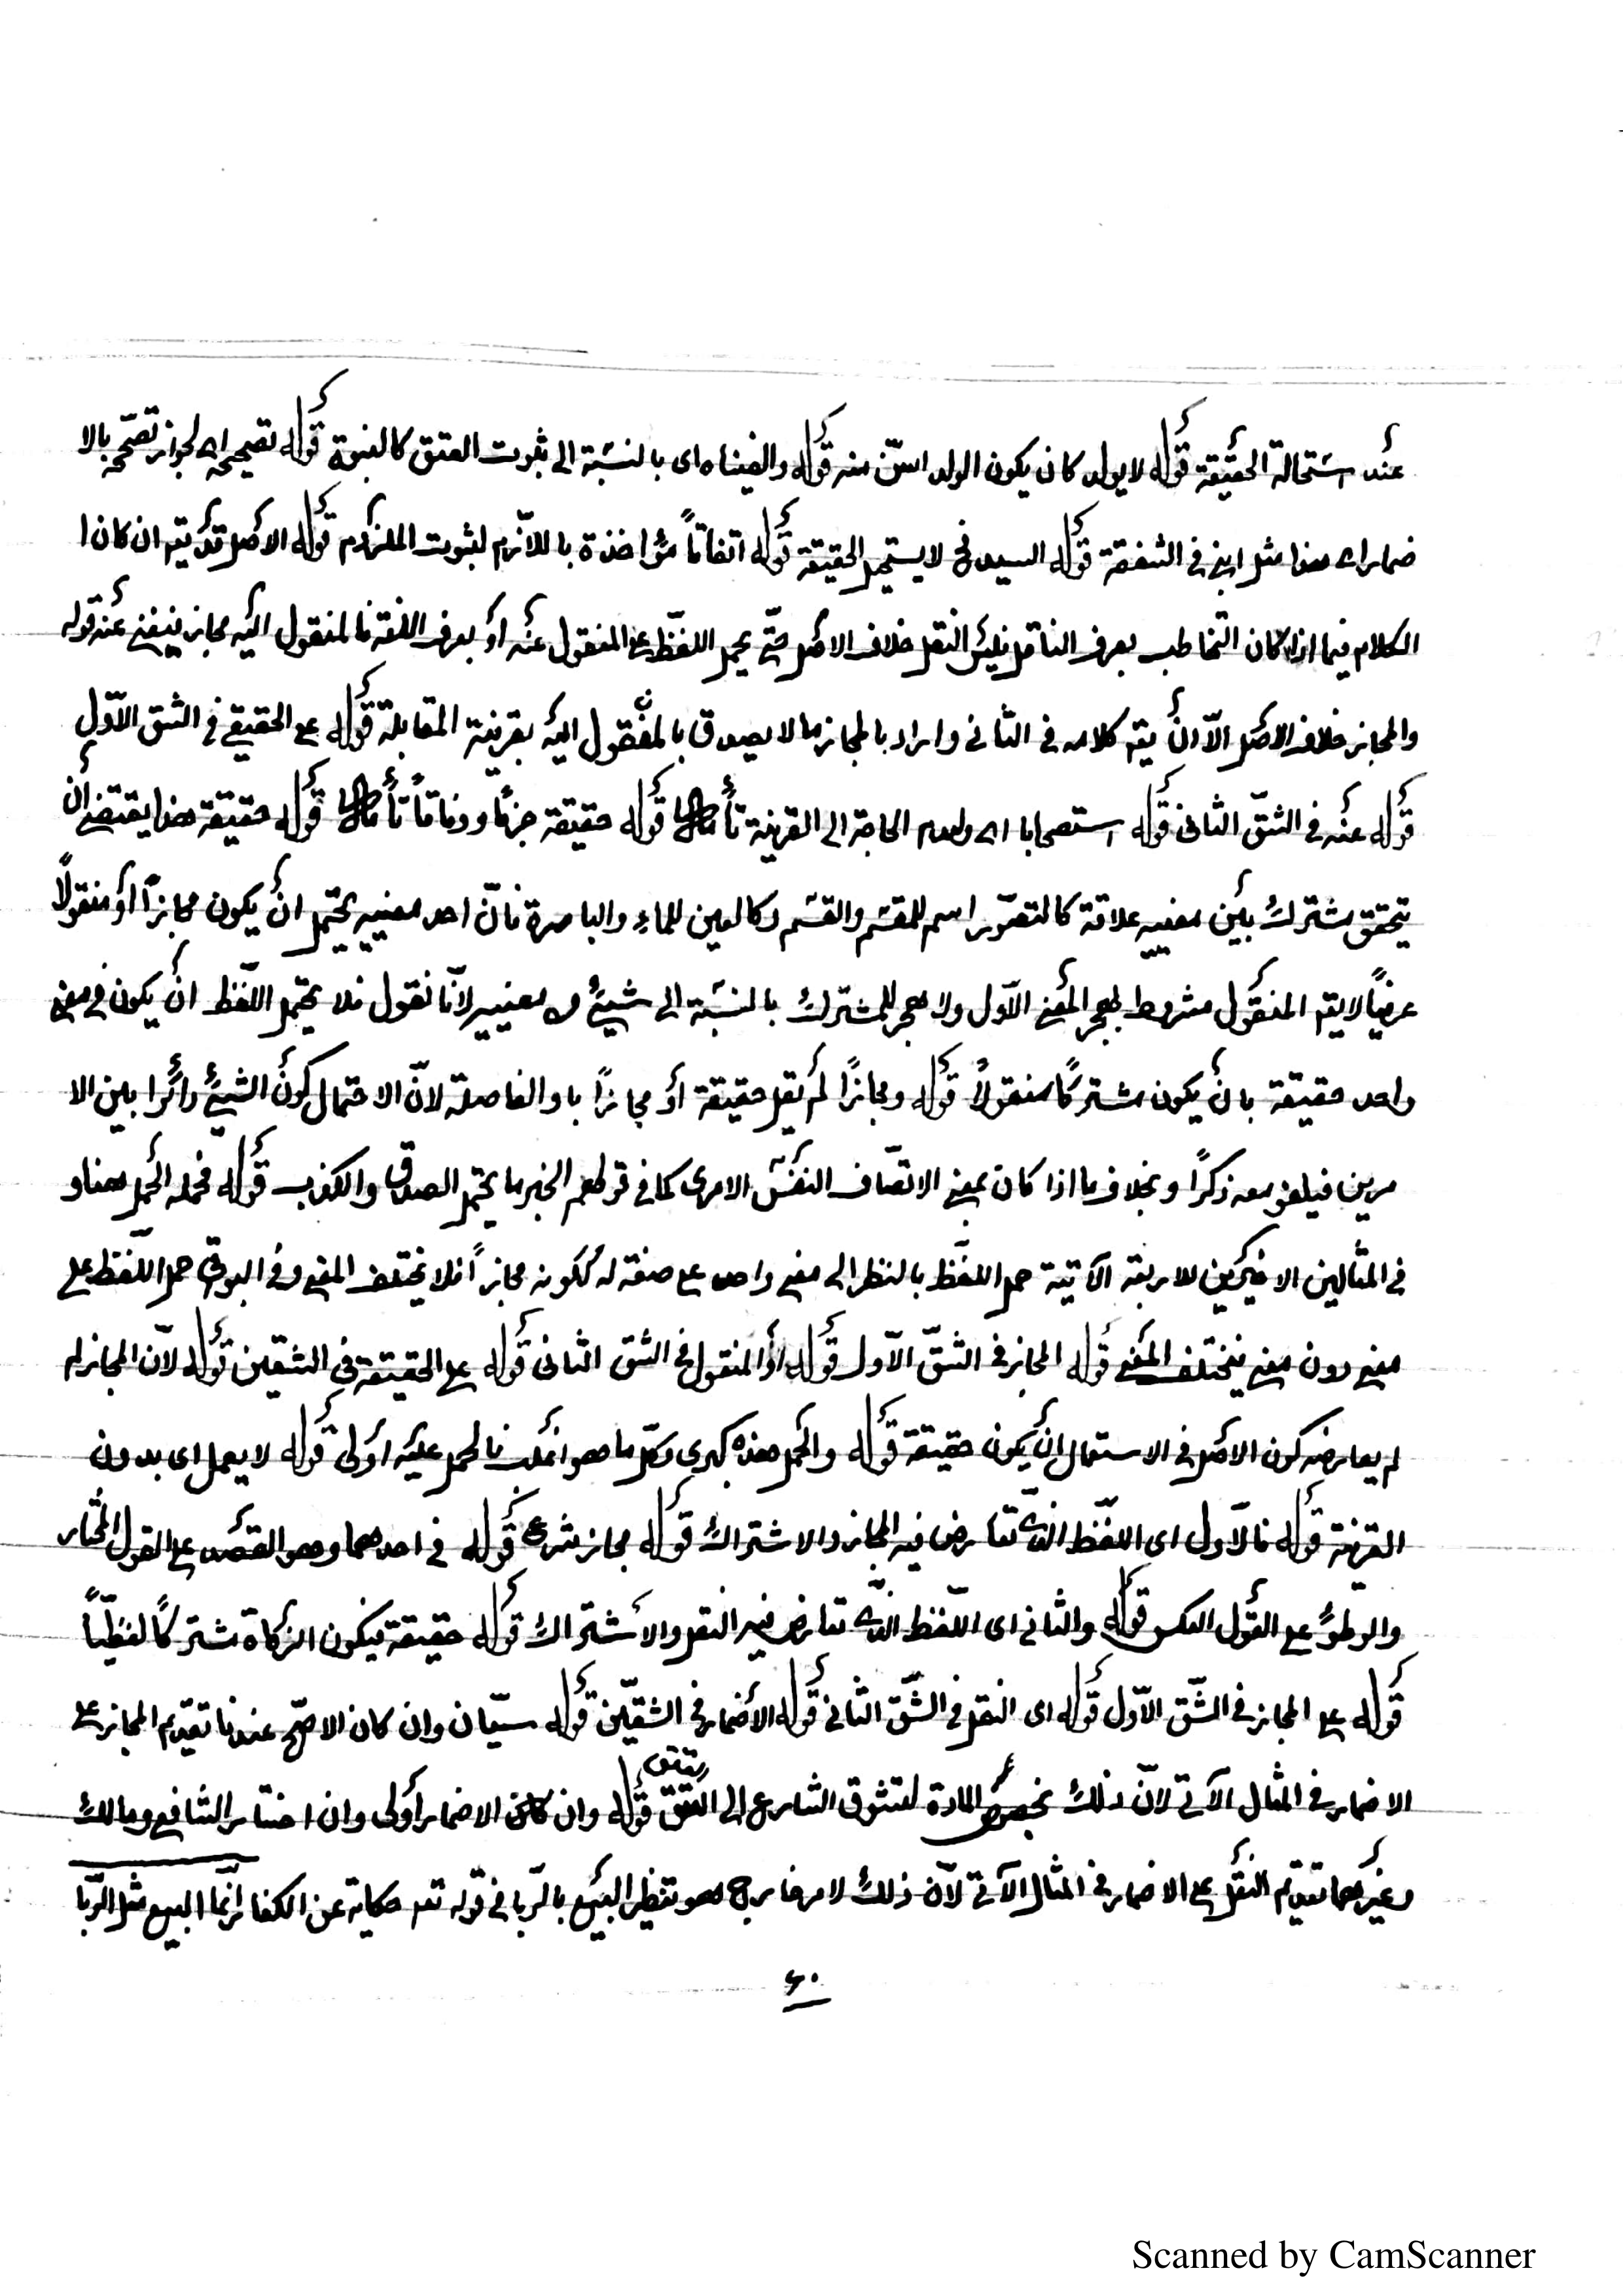 عند استحالة الحقيقة قوله لا يولد كان يكون الولد اسنّ منه قوله والغيناه اى بالنسبة الى ثبوت العتق كالنبوة قوله تصحيحه اى لجواز تصحّحه بالا
ضمار اى هذا مثل ابنى فى الشفقة قوله السيد فح لا يستحيل الحقيقة قوله اتفاقاً مؤاخذة باللاّزم لثبوت الملزوم قوله الاصل قد يتم ان كان ا
الكلام فيما اذا كان التخاطب بعرف الناقل فليس النقل خلاف الاصل حتّى يحمل اللفظ على المنقول عنه او بعرف اللغة فالمنقول اليه مجاز فيغنى عنه قوله
والمجاز خلاف الاصل الاّ ان يقم كلامه فى الثّانى واراد بالمجاز ما لا يصدق بالمنقول اليه بقرينة المقابلة قوله على الحقيقى فى الشق الاّول
قوله عنه فى الشقّ الثانى قوله استصحابا اى ولعدم الحاجة الى القرينة تأمل قوله حقيقة جزمًا ووفاقاً تأمل قوله حقيقة هذا يقتضى أن
يتحقق مشترك بين معنييه علاقة كالتصوّر اسم للمقسَم والقسَم وكالعين للماء والباصرة فانّ احد معنييه يحتمل ان يكون مجازاً او منقولاً
عرفياً لا يقم المنقول مشروط بهجر المعنى الاّول ولا هجر للمشترك بالنسبة الى شيئٍ من معنييه لانّا نقول فلا يحتمل اللّفظ ان يكون فى معنى
واحد حقيقة بان يكون مشتركًا منقولاً قوله ومجازًا لم يقل حقيقة أو مجازًا باو الفاصلة لانّ الاحتمال كون الشيئ دائرا بين الا
مرين فيلغو معه ذكرًا وبخلاف ما اذا كان بمعنى الاتصّاف النفس الامرى كما فى قولهم الخبر ما يحتمل الصدق والكذب قوله فحمله الحمل هنا و
فى المثالين الاخيرين للاربعة الآتية حمل اللفظ بالنظر الى معنى واحد على صفة له ككونه مجازاً فلا يختلف المعنى وفى البواقى حمل اللّفظ على
معنى دون معنى فيختلف المعنى قوله المجاز فى الشقّ الاّول قوله او المنقول فى الشق الثانى قوله على الحقيقة فى الشقين قوله لانّ المجاز لم
لم يعارضه كون الاصل فى الاستعمال ان يكون حقيقة قوله والحمل هذه كبرى وكلّ ما هو اغلب فالحمل عليه اولى قوله لا يعمل اى بدون
القرينة قوله فالاّول اى اللفظ الّذى تعارض فيه المجاز والاشتراك قوله مجاز شرعى قوله فى احدهما وهو العقد على القول المختار
والوطؤ على القول العكس قوله والثانى اى اللّفظ الّذى تعارض فيه النقل والاشتراك قوله حقيقة فيكون الزكاة مشتركًا لفظيّاً
قوله على المجاز فى الشّق الاّول قوله اى النقل فى الشّق الثانى قوله الاضمار فى الشقيّن قوله سيّان وان كان الاصحّ عندنا تقديم المجاز على
الاضمار فى المثال الآتى لانّ ذلك بخصوص المادة لتشوق الشارع الى العتق قوله وان كان الاضمار اولى وان اختار الشافعى ومالك
وغيرهما تقديم النقل على الاضمار فى المثال الآتى لانّ ذلك لامر خارج هو تنظير البيع بالرّبا فى قوله تعا حكاية عن الكفار انّما البيع مثل الرّبا
٦٠
Scanned by CamScanner